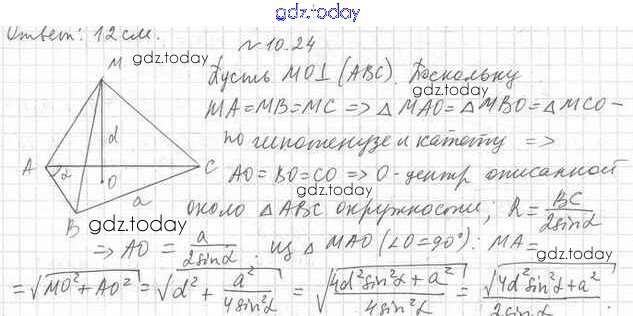 gdz.today
Ответ: 12 см.
№10.24
gdz.today
M
Пусть MO⊥(ABC). Поскольку
MA=MB=MC => △MAO=△MBO=△MCO-
d
по гипотенузе и катету =>
A α O C
AO=BO=CO => O-центр описанной
a
B
gdz.today
около △ABC окружности; R=BC/2sinα
=> AO = a/2sinα; из △MAO (∠O=90°): MA=
gdz.today
=√(MO²+AO²) = √(d² + a²/4sin²α) = √((4d²sin²α+a²)/4sin²α) = √(4d²sin²α+a²)/2sinα